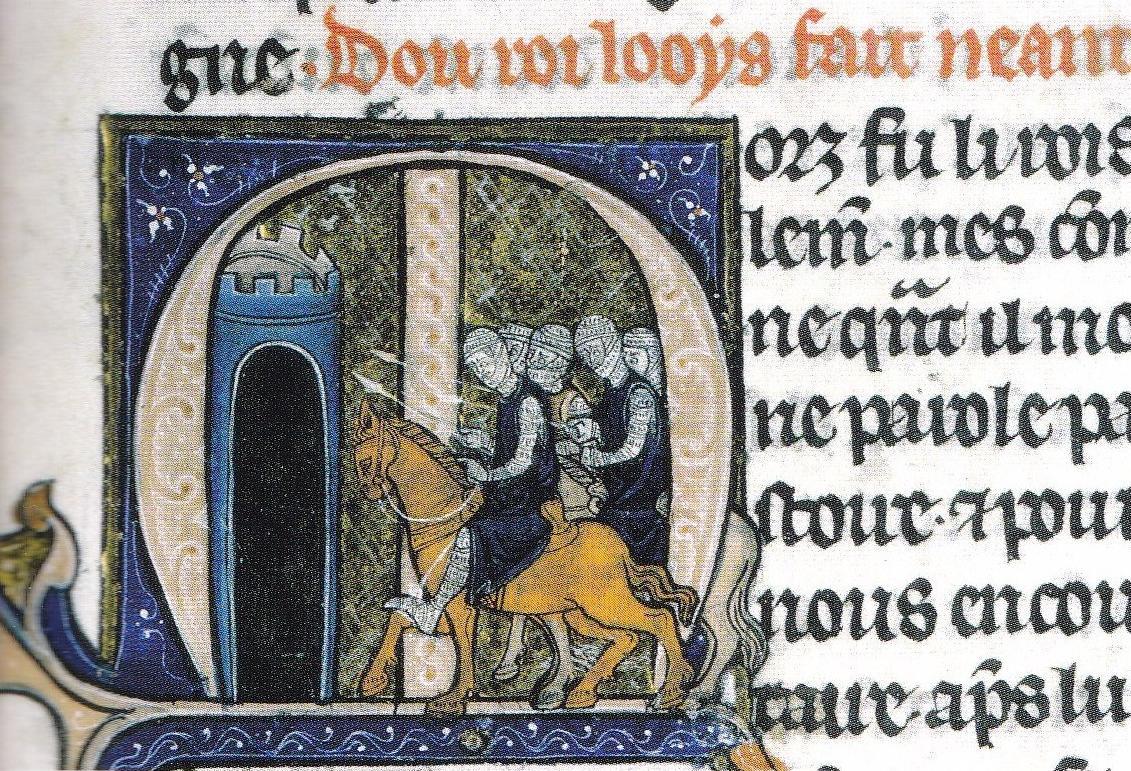 gne. Dou roi looys fait neant
orz fu li rois
lem̄. mes cōm
ne qn̄t il mo
ne parole pa
stour. ⁊ pour
nous encou
taur. ap̄s lu